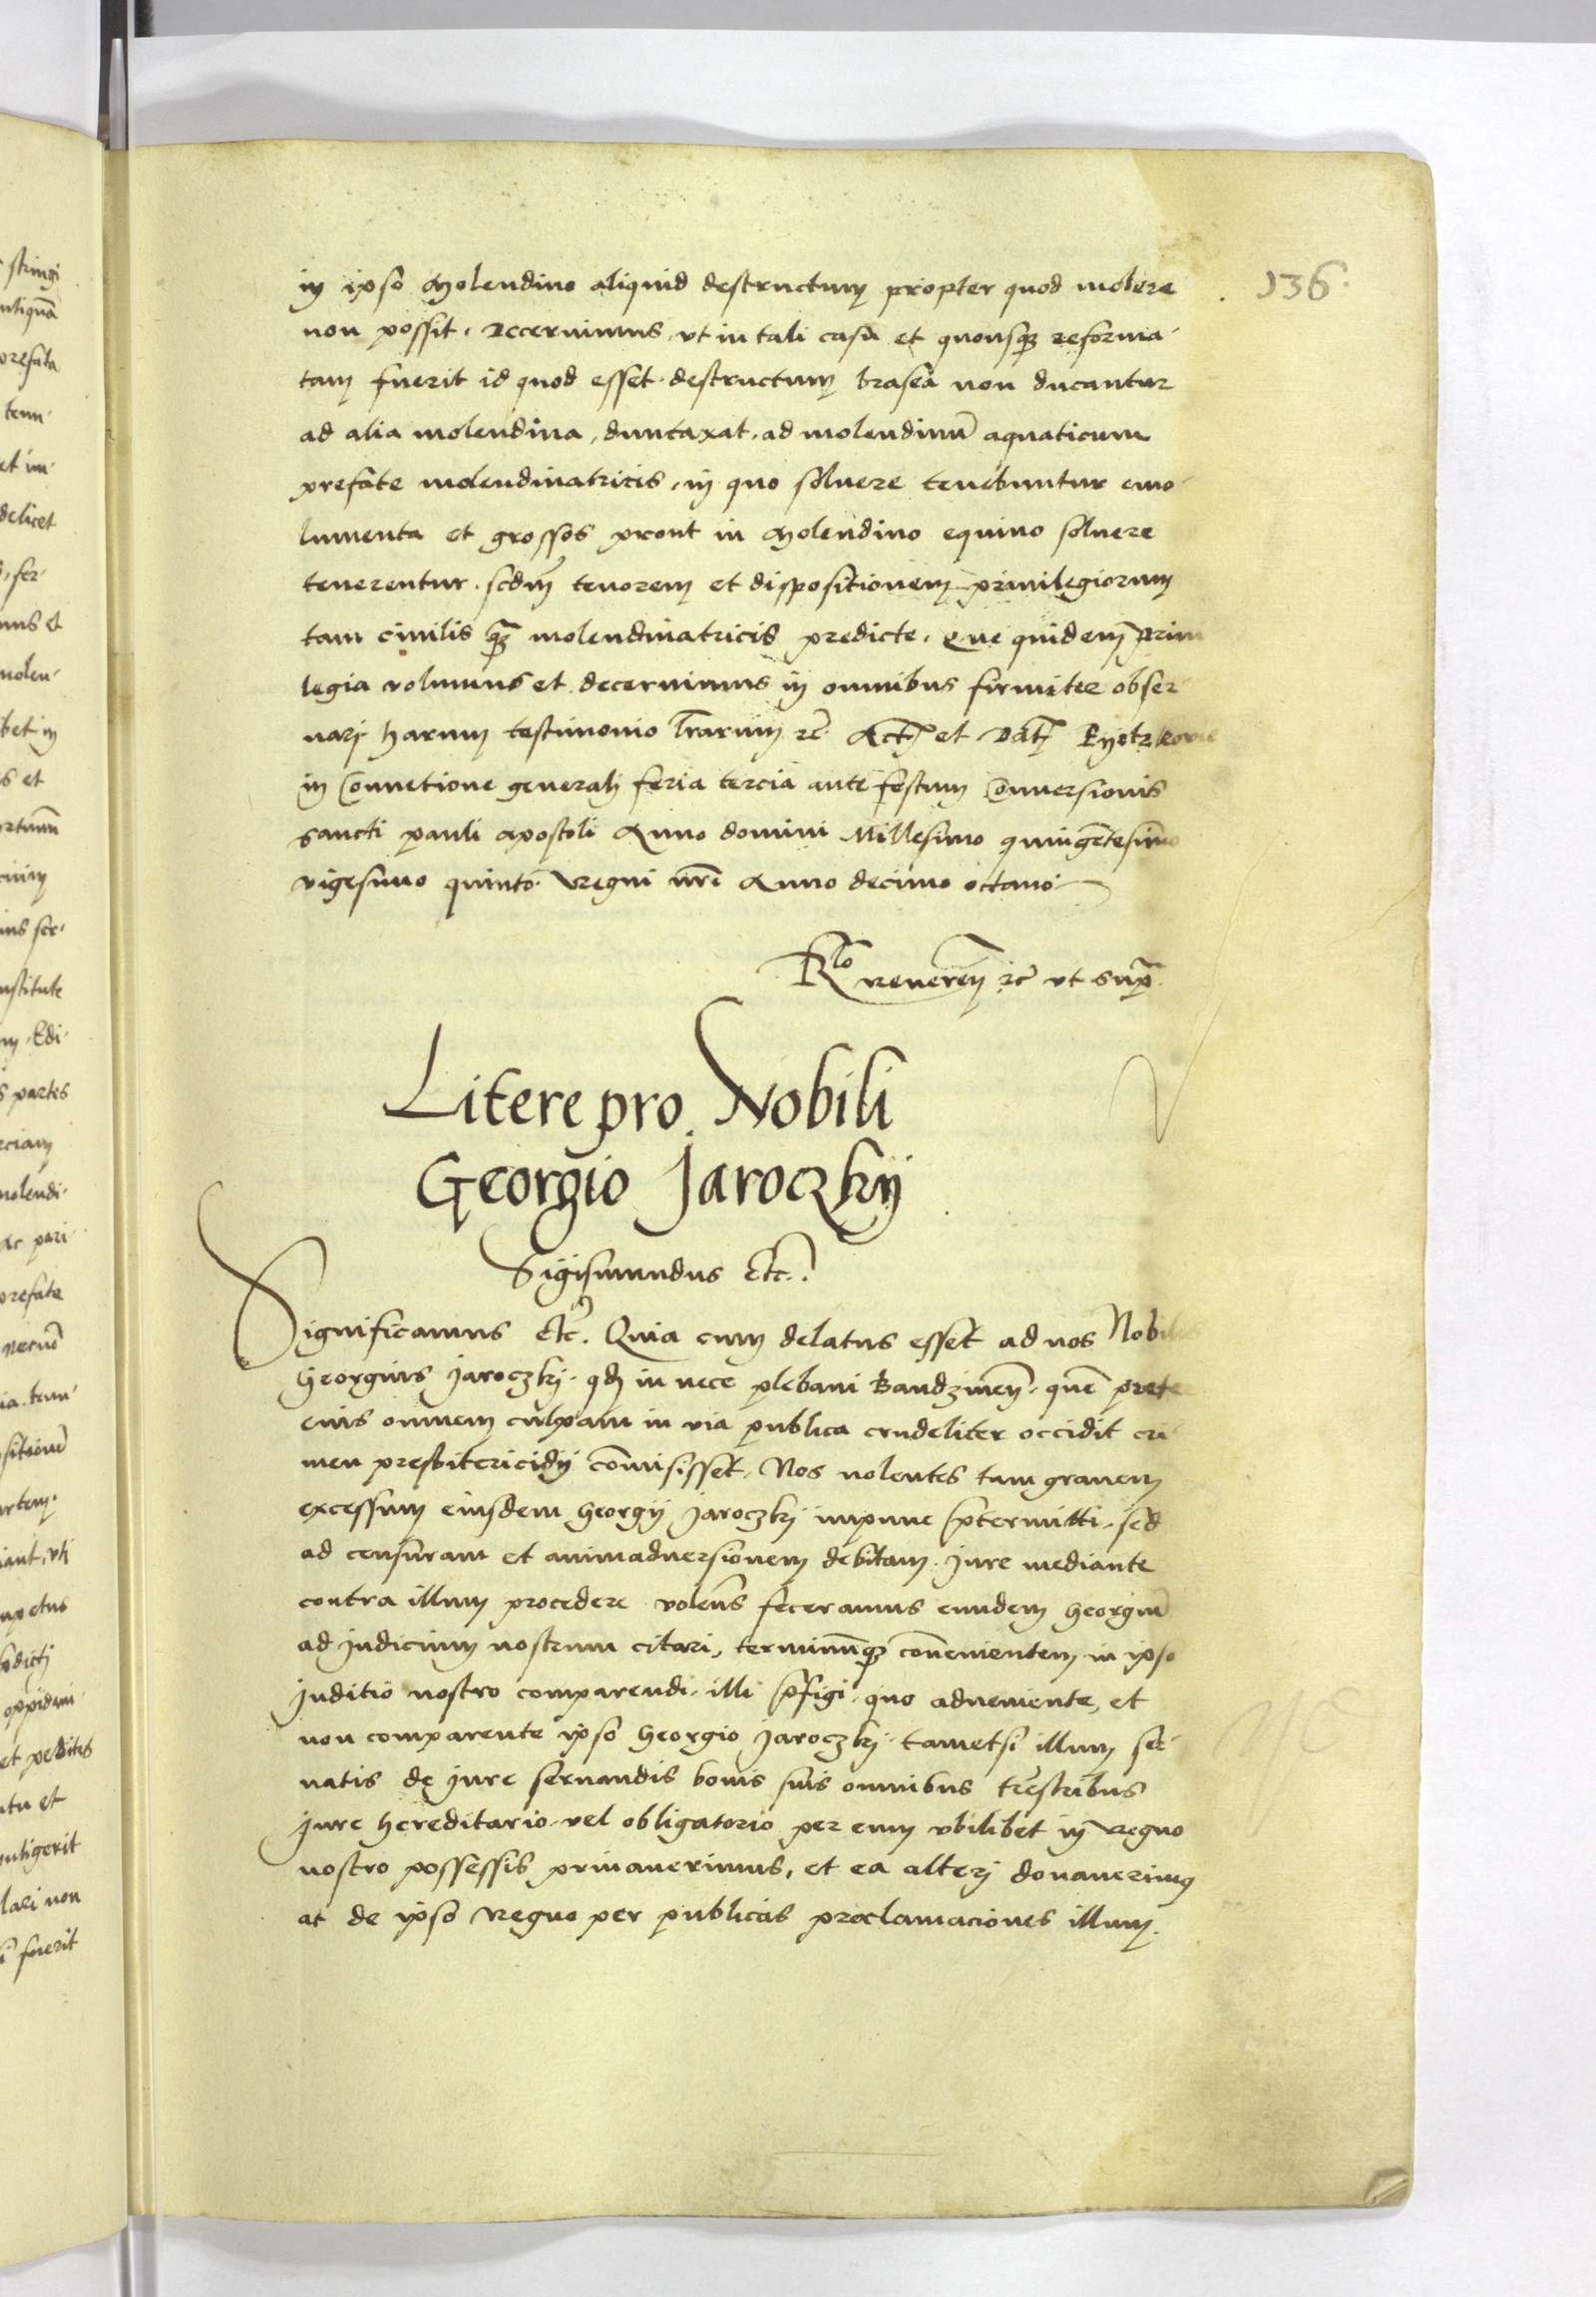 136.
in ipso Molendino aliquid destructum propter quod molere
non possit. Decernimus, vt in tali casu et quousq3 reforma-
tam fuerit id quod esset destructum brasea non ducantur
ad alia molendina, duntaxat ad molendinũ aquaticum
prefate molendinatricis, in quo soluere tenebuntur emo-
lumenta et grossos prout in Molendino equino soluere
tenerentur. scdm̃ tenorem et dispositionem priuilegiorum
tam ciuilis q̃3 molendinatricis predicte. Que quidem priui
legia volumus et decernimus in omnibus firmiter obser-
uarj harum testimonio l̃rarum zc̃. Actũ et Datũ Pyotrkovie
in Conuẽtione generalj feria tercia ante festum Conuersionis
sancti pauli apostoli Anno domini Millesimo quingẽtesimo
vigesimo quinto. Regni nr̃i Anno decimo octauo
R̃lo reueren̄ zc̃ vt sup̃
Litere pro Nobili
Georgio Jaroczkij
Sigismundus etc̃.
Significamus etc̃. Quia cum delatus esset ad nos Nobilis
Georgius Jaroczkj. qd̃ in nece plebani Bandzineñ. quẽ prete
eius omnem culpam in via publica crudeliter occidit cri
men presbitericidij com̃isisset, Nos nolentes tam grauem
excessum eiusdem Georgij Jaroczkj impune p̃termitti, sed
ad censuram et animaduersionem debitam jure mediante
contra illum procedere volens̃ feceramus eundem Georgiũ
ad judicium nostrum citari, terminũq3 conuenientem in ipso
juditio nostro comparendi illi p̃figi quo adueniente, et
non comparente ipso Georgio Jaroczkj tametsi illum ser-
uatis de jure seruandis bonis suis omnibus tr̃estribus
jure hereditario vel obligatorio per eum vbilibet in Regno
nostro possessis priuauerimus, et ea alterj donauerimus
ac de ipso Regno per publicas proclamaciones illum